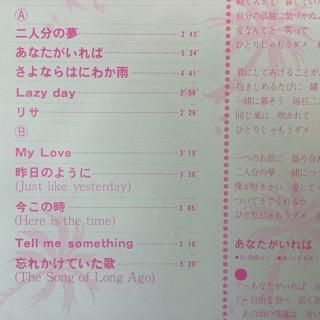 Ⓐ
二人分の夢 2'43"
あなたがいれば 5'24"
さよならはにわか雨 4'41"
Lazy day 2'54"
リサ 2'28"
Ⓑ
My Love 3'19"
昨日のように 3'50"
(Just like yesterday)
今この時 3'05"
(Here is the time)
Tell me something 3'10"
忘れかけていた歌 5'20"
(The Song of Long Ago)
自分の孤独に気づかぬ
愛なんてと 笑って
ひとりじゃもうダメ
君にしてあげることが
抱きしめるたびに
一緒に暮そう 毎日二
同じ風に 吹かれて
ひとりじゃもうダメ
一つのお皿に 盛り合
二人分の夢 一緒につ
僕が好きかい 愛して
ついてきてくれるか
ひとりじゃもうダメ
あなたがいれば
アーあなたがいれば
アー自由な空へ 高く
あの頃の僕達は 青い